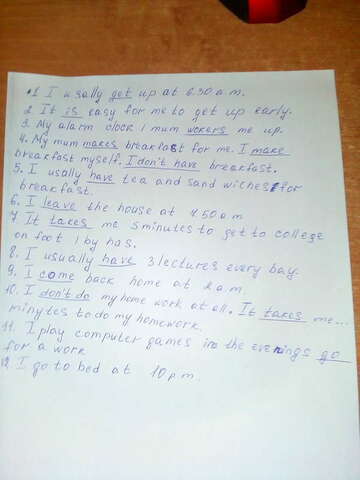 1. I usally get up at 6.30 a.m.
2. It is easy for me to get up early.
3. My alarm clock / mum wakers me up.
4. My mum makes breakfast for me. I make
breakfast myself. I don't have breakfast.
5. I usally have tea and sand witches for
breakfast.
6. I leave the house at 7.50 a.m
7. It takes me 5 minutes to get to college
on foot / by has.
8. I usually have 3 lectures every bay.
9. I come back home at 2 a.m
10. I don't do my home work at all. It takes me...
minytes to do my homework.
11. I play computer games in the evenings go
for a work
12. I go to bed at 10 p.m.